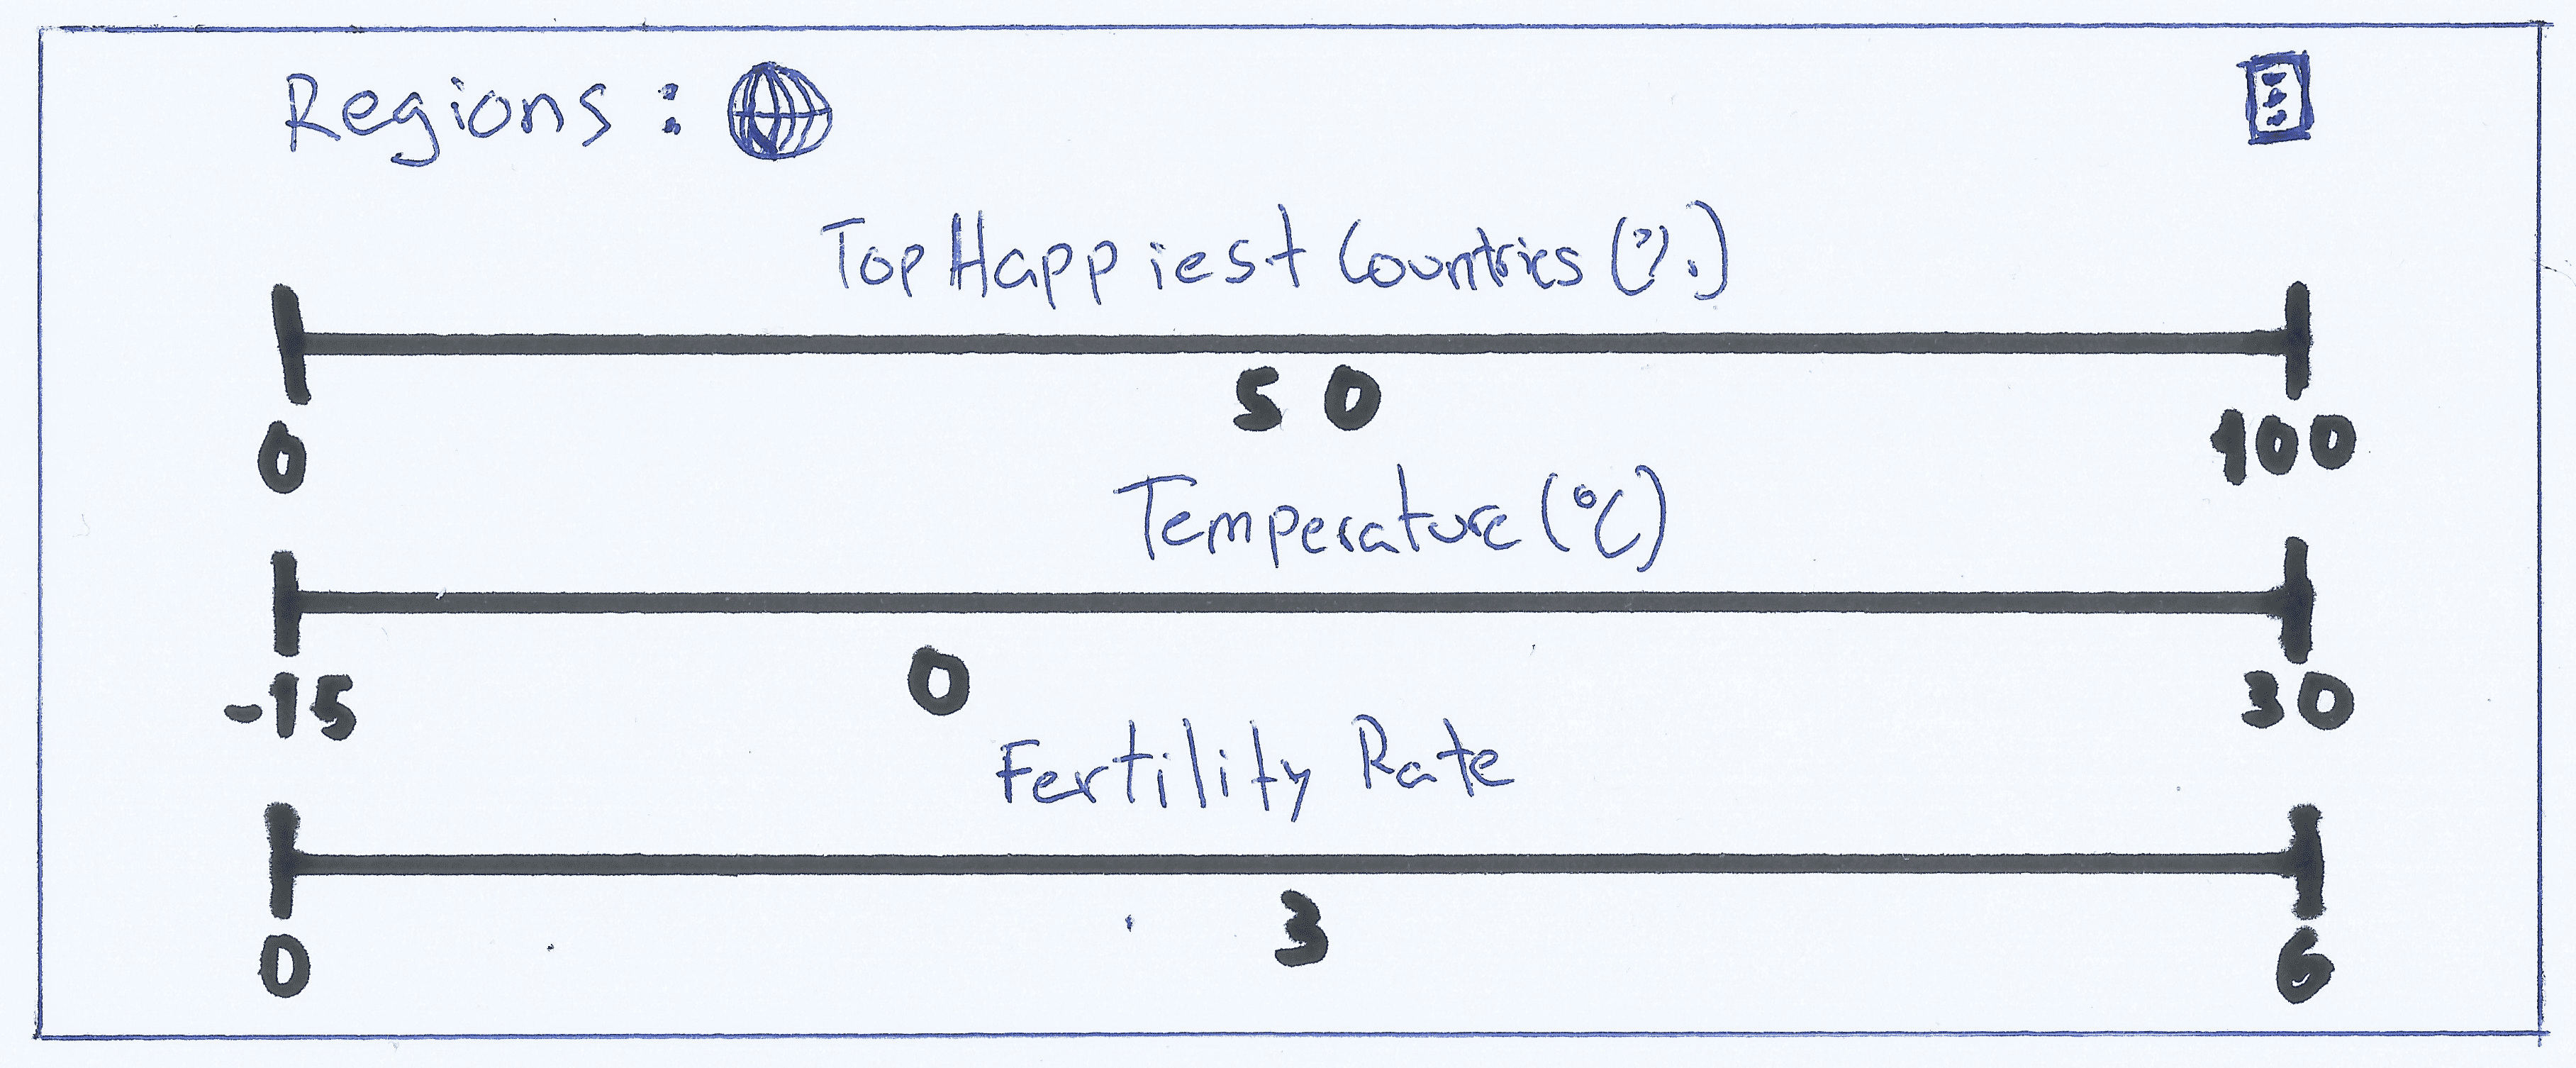 Regions :
Top Happiest Countries (%)
0 50 100
Temperature (°C)
-15 0 30
Fertility Rate
0 3 6